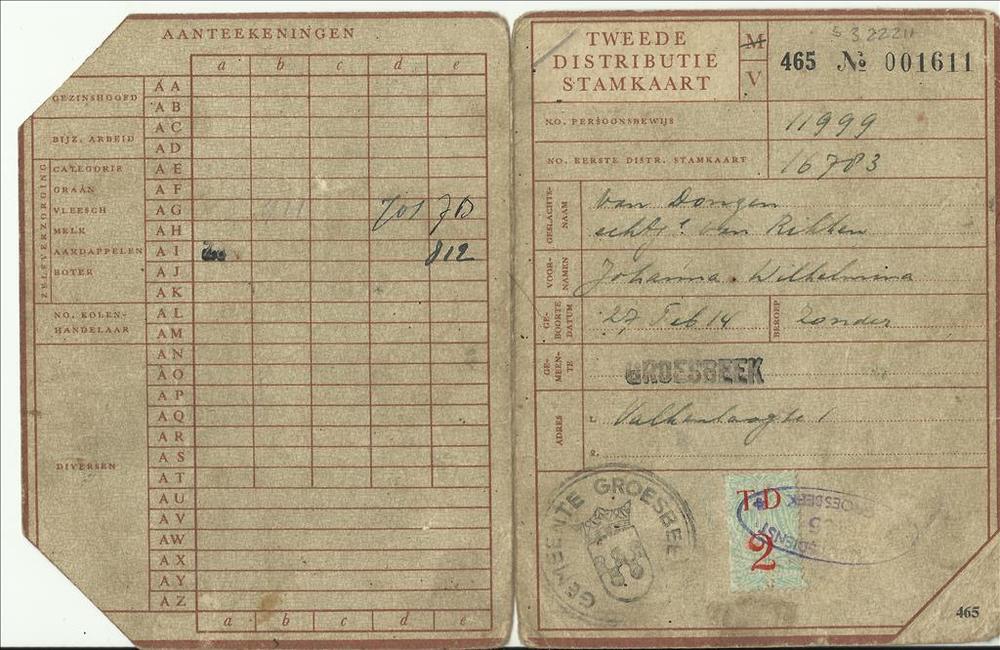 AANTEEKENINGEN
a b c d e
GEZINSHOOFD
A A
A B
BIJZ. ARBEID
A C
A D
ZELFVERZORGING
CATEGORIE A E
GRAAN A F
VLEESCH A G 701 7B
MELK A H
AARDAPPELEN A I 812
BOTER A J
A K
NO. KOLEN-
HANDELAAR
A L
A M
DIVERSEN
A N
A O
A P
A Q
A R
A S
A T
A U
A V
A W
A X
A Y
A Z
a b c d e
TWEEDE
DISTRIBUTIE
STAMKAART
M
V
S 322211
465 No 001611
NO. PERSOONSBEWIJS 11999
NO. EERSTE DISTR. STAMKAART 16783
GESLACHTS-
NAAM
van Dongen
echtg. van Rikken
VOOR-
NAMEN
Johanna Wilhelmina
GE-
BOORTE
DATUM
27 Feb 14
BEROEP
Zonder
GE-
MEEN-
TE
GROESBEEK
ADRES
1.
2.
GEMEENTE GROESBEEK
T D
2
DIENST
GROESBEEK
465